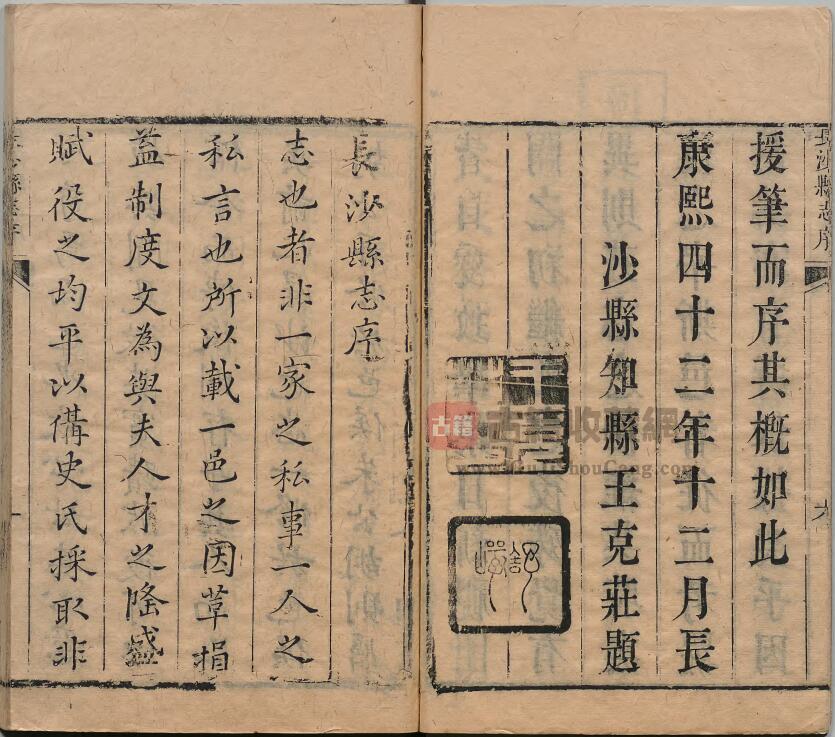 長沙縣志序
援筆而序其概如此
康熙四十二年十二月長
沙縣知縣王克莊題
長沙縣志序
志也者非一家之私事一人之
私言也所以載一邑之因革損
益制度文為與夫人才之隆盛
賦役之均平以備史氏採取非
長沙縣志序
一
古籍
古籍收藏網